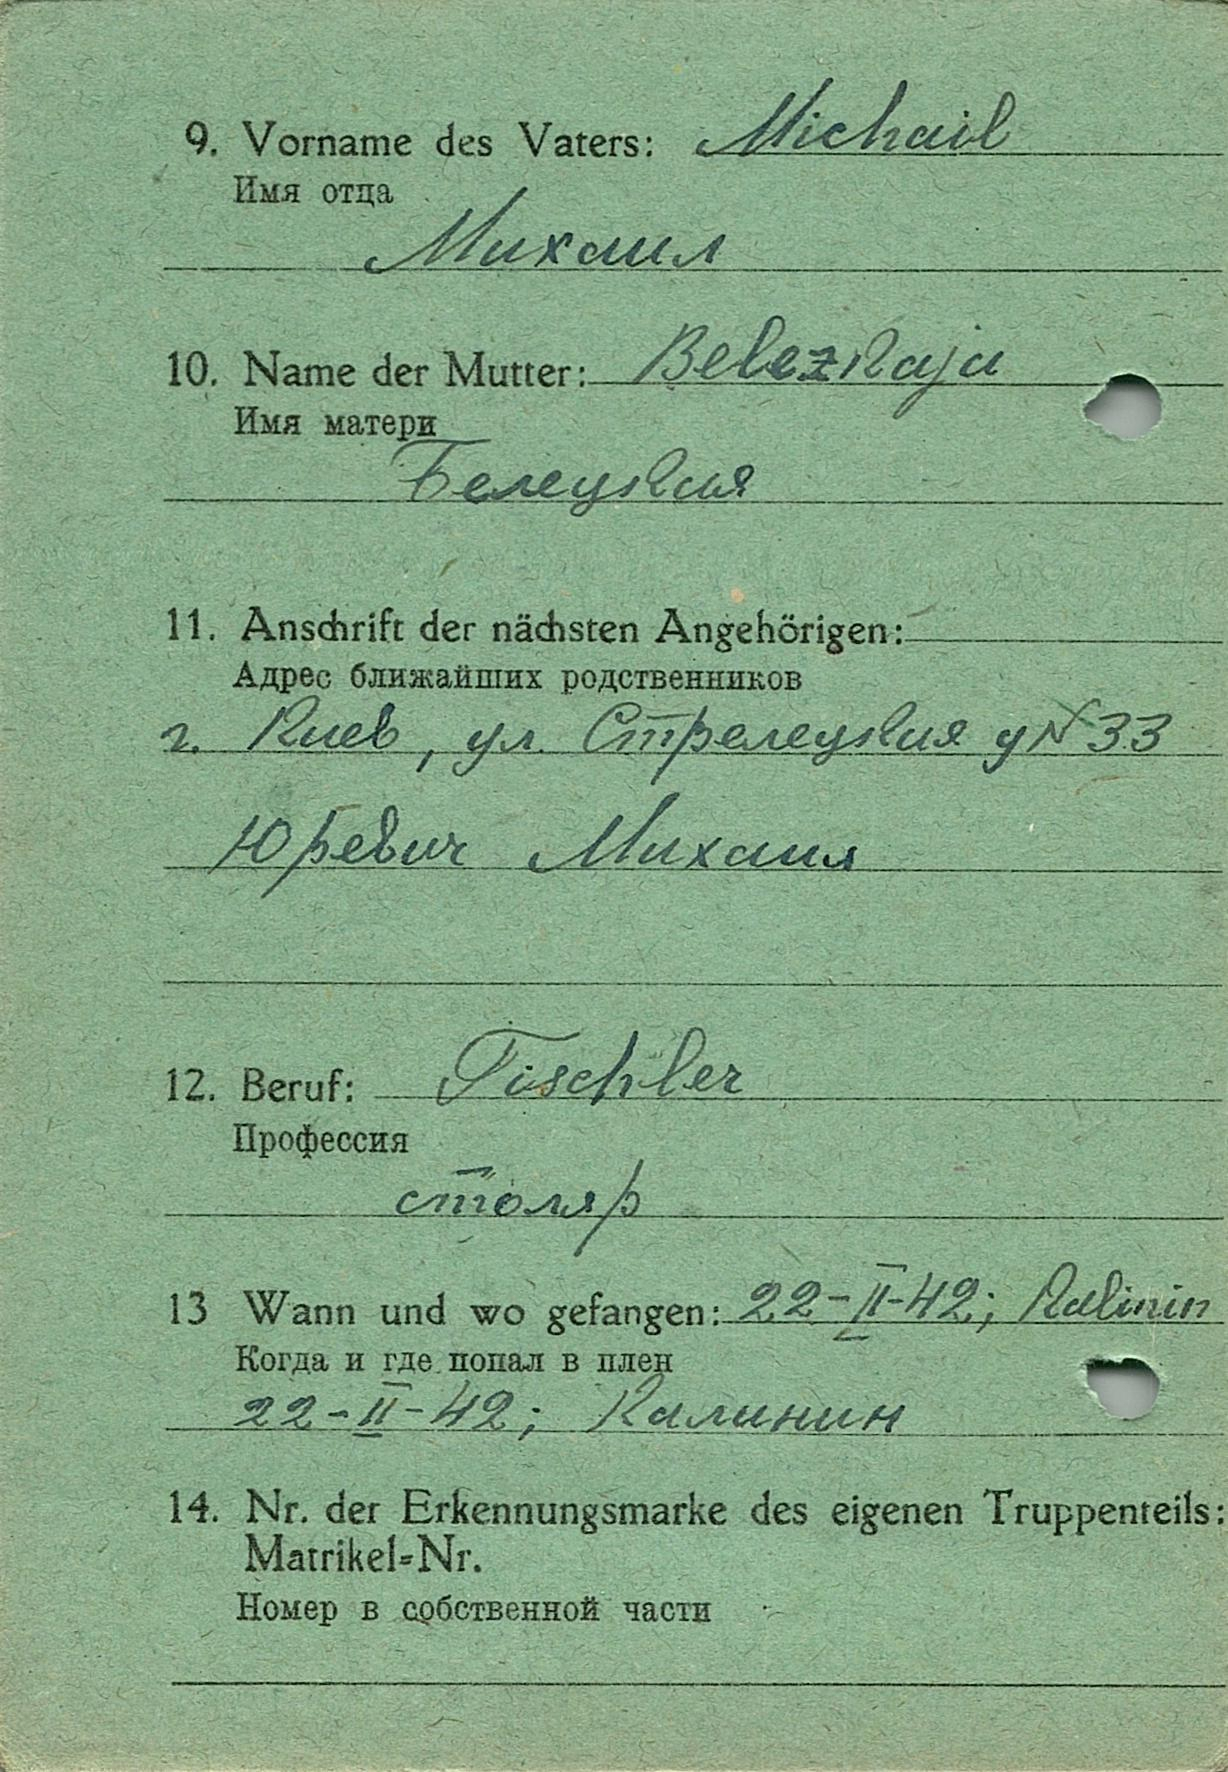 9. Vorname des Vaters: Michail
Имя отца
Михаил
10. Name der Mutter: Belezkaja
Имя матери
Белецкая
11. Anschrift der nächsten Angehörigen:
Адрес ближайших родственников
г. Киев, ул. Стрелецкая у N 33
Юревич Михаил
12. Beruf: Tischler
Профессия
столяр
13 Wann und wo gefangen: 22-II-42; Kalinin
Когда и где попал в плен
22-II-42; Калинин
14. Nr. der Erkennungsmarke des eigenen Truppenteils:
Matrikel-Nr.
Номер в собственной части